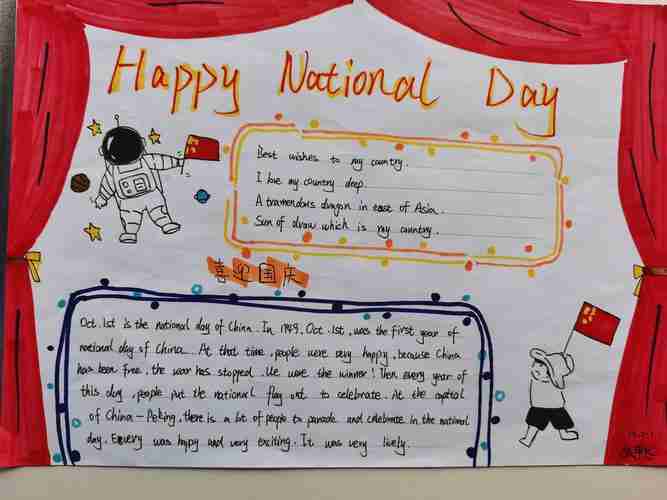 Happy National Day
Best wishes to my country.
I love my country deep.
A tramendors dragon in east of Asia.
Sun of draw which is my country.
喜迎国庆
Oct. 1st is the national day of China. In 1949, Oct. 1st, was the first year of
national day of China. At that time, people were very happy, because China
has been free, the war has stopped. We were the winner! Then every year of
this day, people put the national flag out to celebrate. At the capital
of China - Peking, there is a lot of people to parade and celebrate in the national
day. Envery was happy and very exciting. It was very lively.